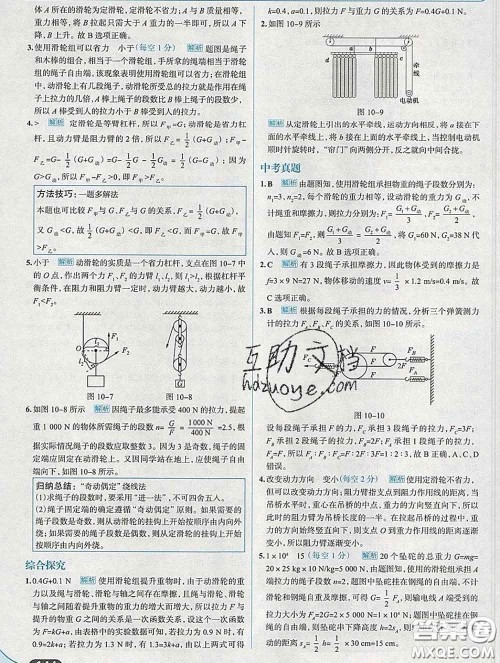 体 A 所在的滑轮为定滑轮,定滑轮不省力,所以 A
将 A 的重力大于重力的一半即可,所以 A 下
降,B 上升。故 B 选项正确。
3.使用滑轮组可以省力 小于(每空 1 分) 解析 题图是绳子
和木棒的组合,相当于一个滑轮组,手所拿的绳端相当于滑轮
组的绳子自由端,该现象表明使用滑轮组可以省力;在滑轮组
中,动滑轮上有几段绳子,动滑轮所受总的拉力就是作用在绳
子上拉力的几倍,A 棒上绳子的段数比 B 棒上绳子的段数少,
所以 A 棒受到人的拉力小于 B 棒受到人的拉力。
4.> 解析 定滑轮是等臂杠杆,所以 F甲=G;动滑轮是省力杠
杆,且动力臂是阻力臂的 2 倍,所以 F乙=1/2(G+G动),由于
F甲-F乙=G-1/2(G+G动)=1/2G-1/2G动=1/2(G-G动);因为
G>G动,所以 F甲>F乙。
方法技巧:一题多解法
本题也可比较 F甲与 G、F乙与 G 的关系,F乙=1/2(G+G动),
又 G动<G,故1/2(G+G动)<G,即 F乙<G,故 F甲>F乙。
5.小于 解析 动滑轮的实质是一个省力杠杆,支点在图 10-7 中
的 O 点,作出两个力 F1、F2 的力臂 l1、l2,则 l1>l2。根据杠杆平
衡条件,在阻力和阻力臂一定时,动力臂越大,动力越小,故
F1<F2。
l1
l2
F1
F2
O
图 10-7
图 10-8
6.如图 10-8 所示 解析 因绳子最多能承受 400 N 的拉力,提起
重 1 000 N 的物体所需绳子的段数 n=G/F=1 000 N/400 N=2.5,根
据实际情况绳子的段数应取整数 3。因为 3 是奇数,绳子的固
定端应固定在动滑轮上。又因同学站在地上,应使绳子自由端
向下,故绕法如图 10-8 所示。
归纳总结:“奇动偶定”绕线法
(1)求绳子的段数时,要采用“进一法”,不可四舍五入。
(2)绳子固定端的确定遵循“奇动偶定”原则。如果需要的
绳子段数是奇数,则从动滑轮的挂钩上开始按顺序由内向外
绕;如果需要的绳子段数是偶数,则从定滑轮的挂钩上开始
按顺序由内向外绕。
综合探究
1.0.4G+0.1 N 解析 使用滑轮组提升重物时,由于动滑轮的重
力以及绳与滑轮、滑轮与轴之间存在摩擦,且滑轮与绳、滑轮
与轴之间随着提升重物的重力的增大而增大,所以拉力 F 与
提升的物体的重力 G 之间的关系是一次函数关系,设一次函数
为 F=kG+a,由表格中的实验数据可知,若拉力为 0.9 N 时,有
0.9=2k+a,若拉力为 1.3 N 时,有 1.3=3k+a,由以上两式可得
k=0.4,a=0.1,所以拉力 F 与重力 G 的关系为 F=0.4G+0.1 N。
2.如图 10-9 所示
a
b
d
c
牵
线
电动机
图 10-9
解析 从定滑轮上引出的水平牵线,运动方向相反,将 a 接在下
面的水平牵线上,将 b 接在上面的水平牵线上,当控制电动机
顺时针旋转时,“帘门”向两侧分开,反之就向中间合拢。
中考真题
1.B 解析 由题图知,使用滑轮组承担物重的绳子段数分别为:
n1=3,n2=2,每个滑轮的重力相等,设动滑轮的重力为 G动,不
计绳重和摩擦力,则拉力分别为:F1=(G1+G动)/3,F2=(G2+G动)/2,
由题知 F1=F2,则(G1+G动)/3=(G2+G动)/2,将 G1=60 N、G2=38 N 代
入,则 G动=6 N。故 B 选项正确。
2.C 解析 有 3 段绳子承担摩擦力,因此物体受到的摩擦力是
f=3×9 N=27 N,物体移动的速度 v=1/3×1.2 m/s=0.4 m/s。故
C 选项正确。
3.B 解析 根据每段绳子承担力的情况,分析三个弹簧测力
计的拉力 FA、FB、FC 的关系,如图 10-10 所示。
FC
F
F
F
2F
FB
FA
图 10-10
设每段绳子承担力为 F,则 FC 承担 3 段绳子的拉力,FC=3F;
FB 承担 2 段绳子的拉力,FB=2F;FA 承担 1 段绳子的拉力,
FA=F,所以 FA:FB:FC=F:2F:3F=1:2:3。故 B 选项正确。
4.改变动力方向 变小(每空 2 分) 解析 使用定滑轮不省力,
但可以改变动力方向;阻力臂指支点到阻力作用线的距离,当
吊桥水平时,重心在吊桥的中点,重力的方向竖直向下,所以此
时的阻力臂为吊桥长度的一半。在拉起吊桥的过程中,重力的
方向始终竖直向下,则支点到力的作用线的距离逐渐变小,
所以阻力臂逐渐变小。
5.1×10⁴ 15 (每空 1 分) 解析 20 个坠砣的总重力 G=mg=
20×25 kg×10 N/kg=5 000 N;由题图知,使用滑轮组承担 A
端拉力的绳子段数 n=2,题图中坠砣挂在绳绳的自由端,不计
滑轮与轴间的摩擦及滑轮和绳的自重,所以滑轮组 A 端受到
的拉力 F=2G=2×5 000 N=1×10⁴ N;因为坠砣挂在绳绳的自
由端,且 n=2,则坠砣串下降高度 h=s绳=30 cm,所以 A 端向左移
动的距离 s=1/2h=1/2×30 cm=15 cm。
互助文档
hdzuoye.com
答案圈
MXQE.COM